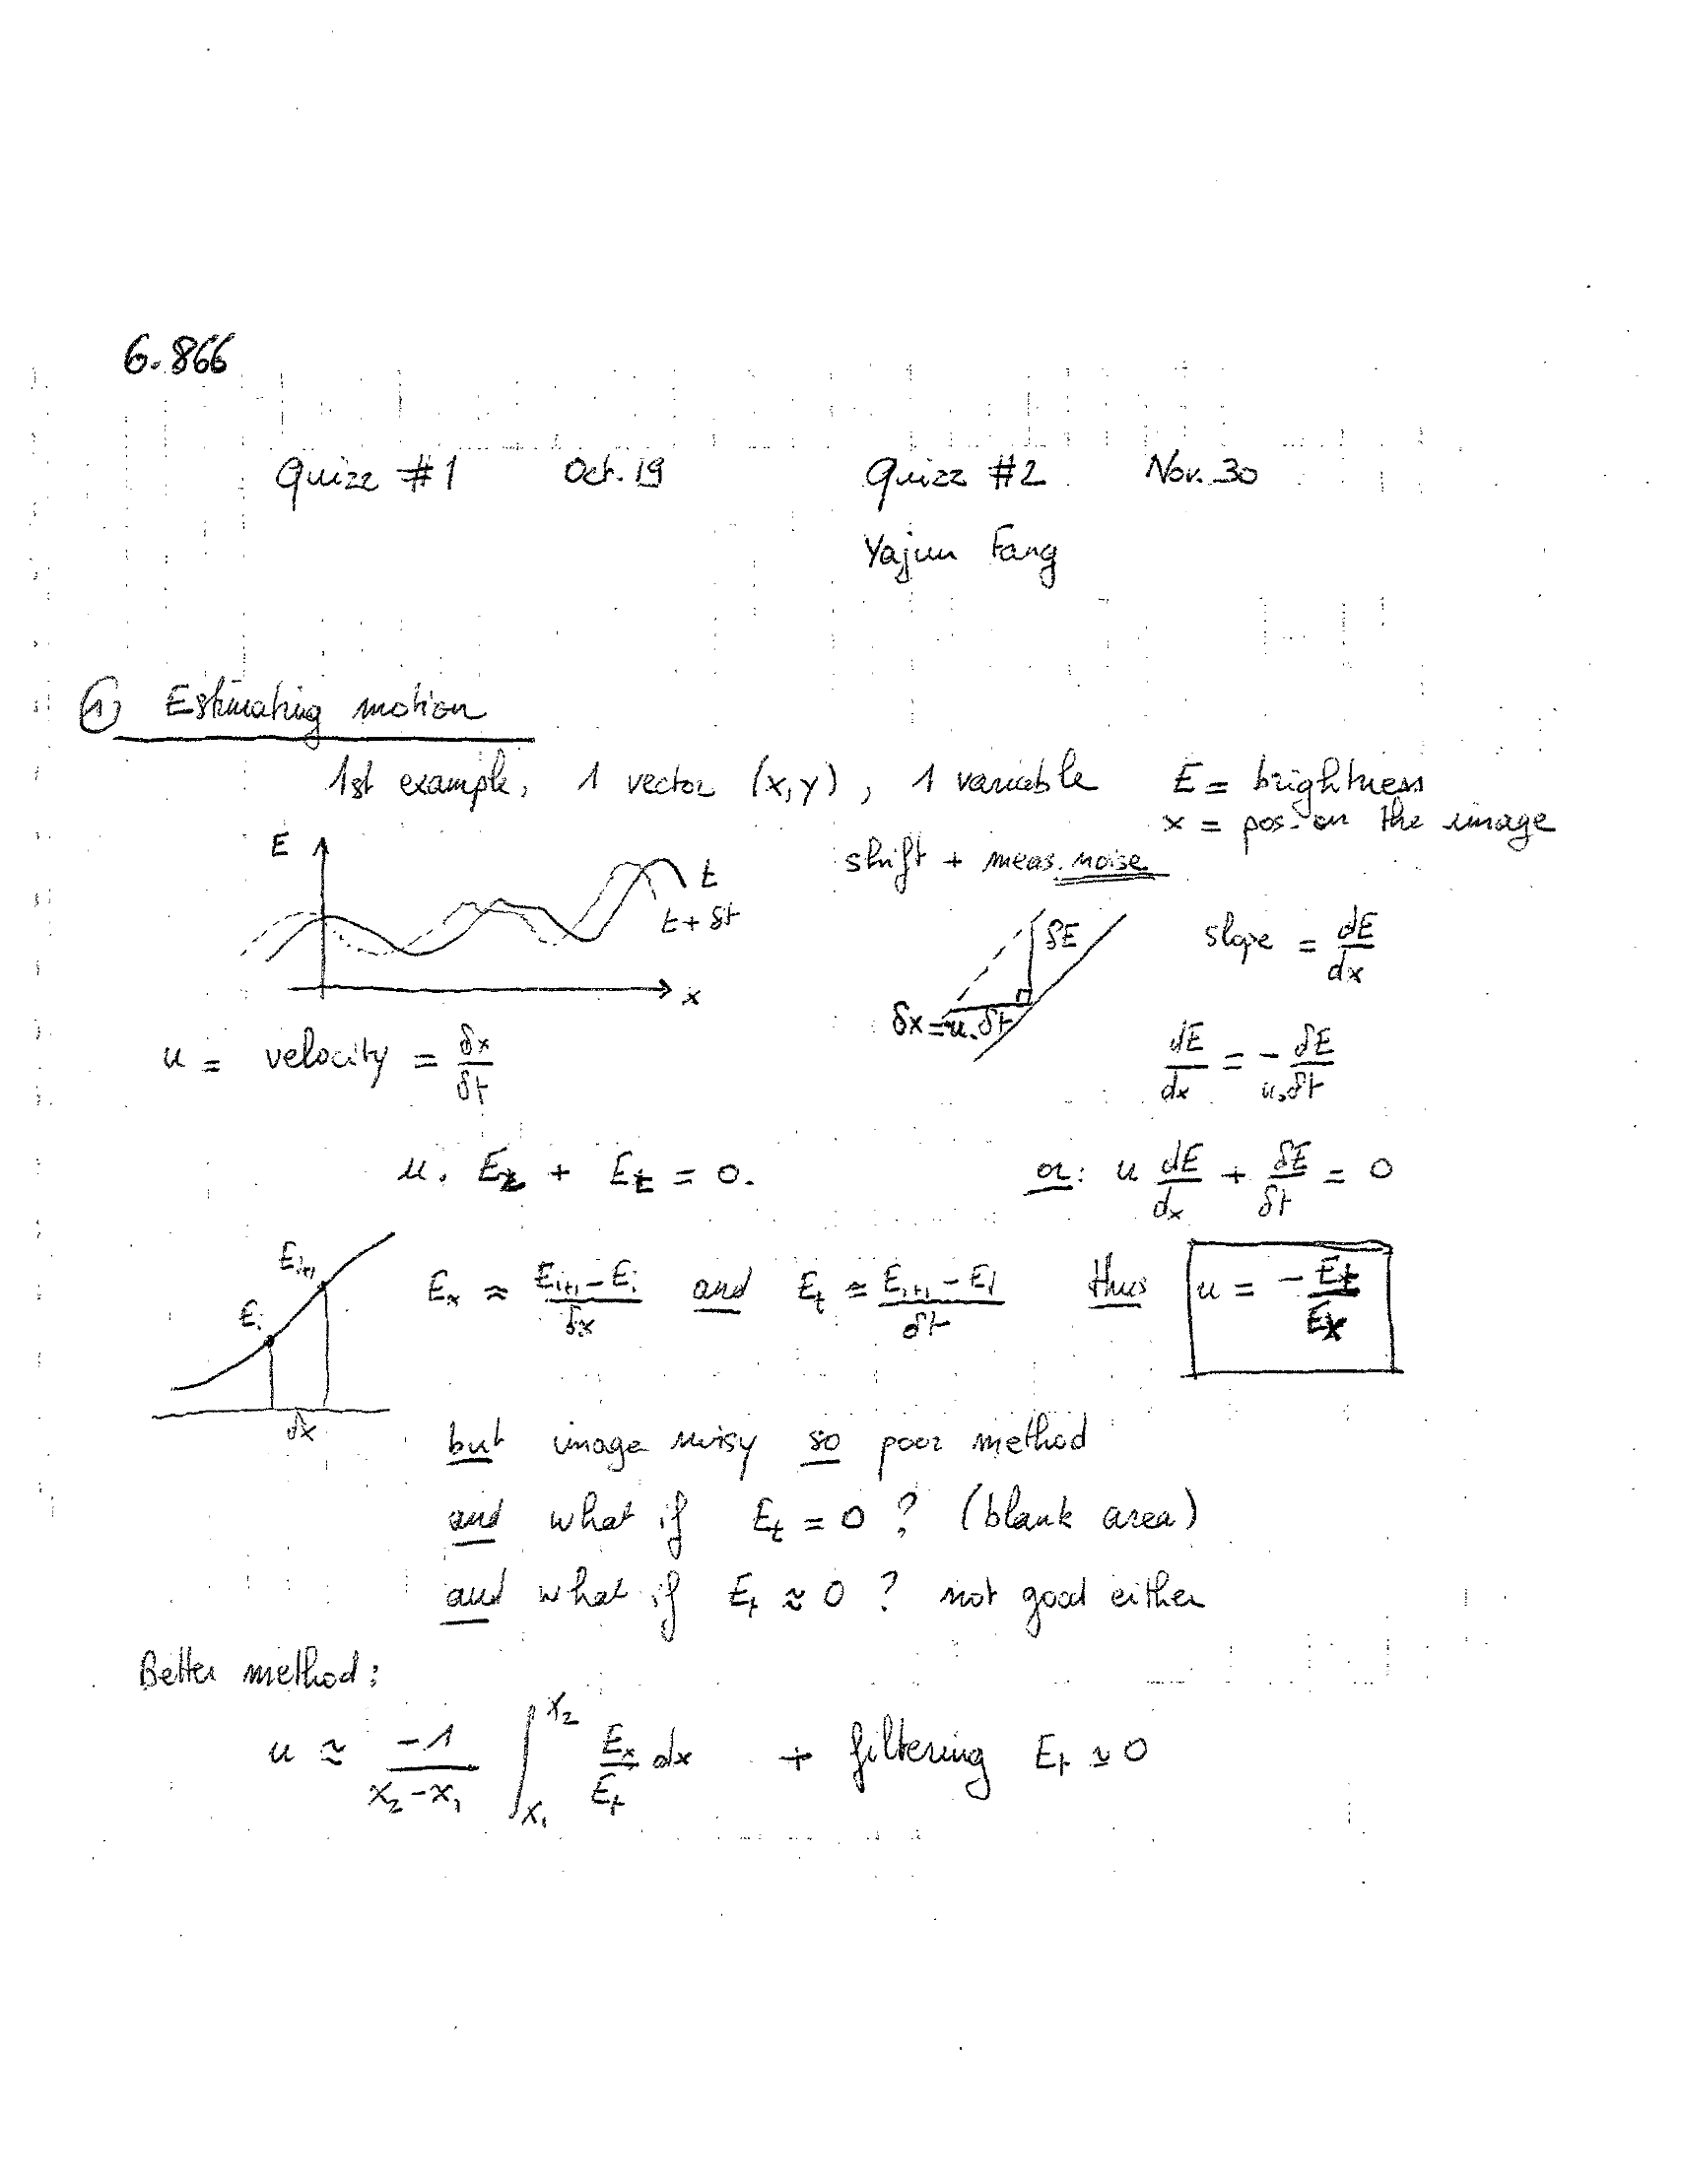 6.866
Quizz #1 Oct. 19 Quizz #2 Nov. 30
Yajun Fang
1) Estimating motion
1st example, 1 vector (x,y), 1 variable E = brightness
x = pos. on the image
shift + meas. noise
E
t
t + δt
x
δE
δx = u.δt
slope = dE/dx
u = velocity = δx/δt
dE/dx = - δE/u.δt
u. Ex + Et = 0.
or: u dE/dx + δE/δt = 0
Ei+1
Ei
δx
Ex ≈ Ei+1 - Ei/δx and Et ≃ Ei+1 - Ei/δt thus u = - Et/Ex
but image noisy so poor method
and what if Et = 0 ? (blank area)
and what if Et ≈ 0 ? not good either
Better method:
u ≈ -1/x2 - x1 ∫x1 x2 Ex/Et dx + filtering Et ≃ 0